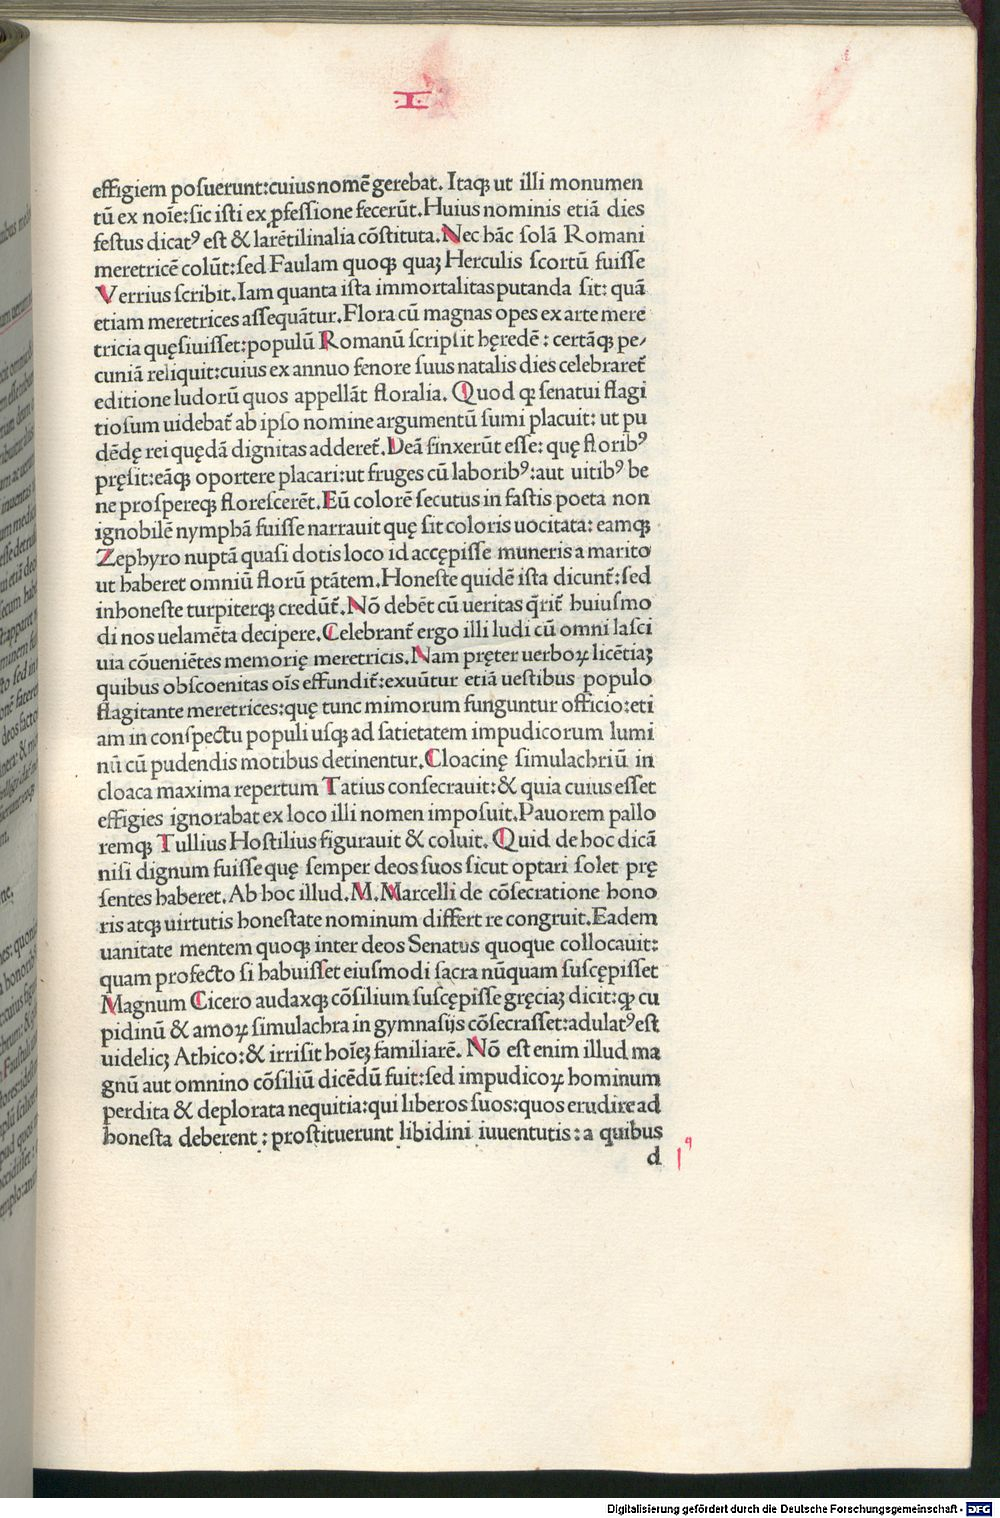 ·I·
effigiem poſuerunt:cuius nomē gerebat. Itaqꝫ ut illi monumen
tū ex noīe:ſic iſti ex ꝓfeſſione fecerūt.Huius nominis etiā dies
feſtus dicatꝰ eſt & larētilinalia cōſtituta.Nec hāc ſolā Romani
meretricē colūt:ſed Faulam quoqꝫ quaꝫ Herculis ſcortū fuiſſe
Verrius ſcribit.Iam quanta iſta immortalitas putanda ſit: quā
etiam meretrices aſſequātur.Flora cū magnas opes ex arte mere
tricia quęſiuiſſet:populū Romanū ſcripſit hęredē : certāqꝫ pe/
cuniā reliquit:cuius ex annuo fenore ſuus natalis dies celebraret̄
editione ludorū quos appellāt floralia. Quod qꝛ ſenatui flagi
tioſum uidebat̄ ab ipſo nomine argumentū ſumi placuit: ut pu
dēdę rei quędā dignitas adderet̄.Deā finxerūt eſſe: quę floribꝰ
pręſit:eāqꝫ oportere placari:ut fruges cū laboribꝰ:aut uitibꝰ be
ne proſpereqꝫ floreſcerēt.Eū colorē ſecutus in faſtis poeta non
ignobilē nymphā fuiſſe narrauit quę ſit coloris uocitata: eamqꝫ
Zephyro nuptā quaſi dotis loco id accępiſſe muneris a marito
ut haberet omniū florū ptātem.Honeſte quidē iſta dicunt̄:ſed
inhoneſte turpiterqꝫ credūt̄.Nō debēt cū ueritas q̄rit̄ huiuſmo
di nos uelamēta decipere.Celebrant̄ ergo illi ludi cū omni laſci
uia cōueniētes memorię meretricis.Nam pręter uerboꝝ licētiaꝫ
quibus obſcoenitas oīs effundit̄:exuūtur etiā ueſtibus populo
flagitante meretrices:quę tunc mimorum funguntur officio:eti
am in conſpectu populi uſqꝫ ad ſatietatem impudicorum lumi
nū cū pudendis motibus detinentur.Cloacinę ſimulachriū in
cloaca maxima repertum Tatius conſecrauit:& quia cuius eſſet
effigies ignorabat ex loco illi nomen impoſuit.Pauorem pallo
remqꝫ Tullius Hoſtilius figurauit & coluit. Quid de hoc dicā
niſi dignum fuiſſe quę ſemper deos ſuos ſicut optari ſolet prę
ſentes haberet.Ab hoc illud.M.Marcelli de cōſecratione hono
ris atqꝫ uirtutis honeſtate nominum differt re congruit.Eadem
uanitate mentem quoqꝫ inter deos Senatus quoque collocauit:
quam profecto ſi habuiſſet eiuſmodi ſacra nūquam ſuſcępiſſet
Magnum Cicero audaxqꝫ cōſilium ſuſcępiſſe gręciaꝫ dicit:ꝙ cu
pidinū & amoꝝ ſimulachra in gymnaſijs cōſecraſſet:adulatꝰ eſt
uidelicꝫ Athico:& irriſit hoīeꝫ familiarē. Nō eſt enim illud ma
gnū aut omnino cōſiliū dicēdū fuit:ſed impudicoꝝ hominum
perdita & deplorata nequitia:qui liberos ſuos:quos erudire ad
honeſta deberent : proſtituerunt libidini iuuentutis : a quibus
d
Digitalisierung gefördert durch die Deutsche Forschungsgemeinschaft - DFG